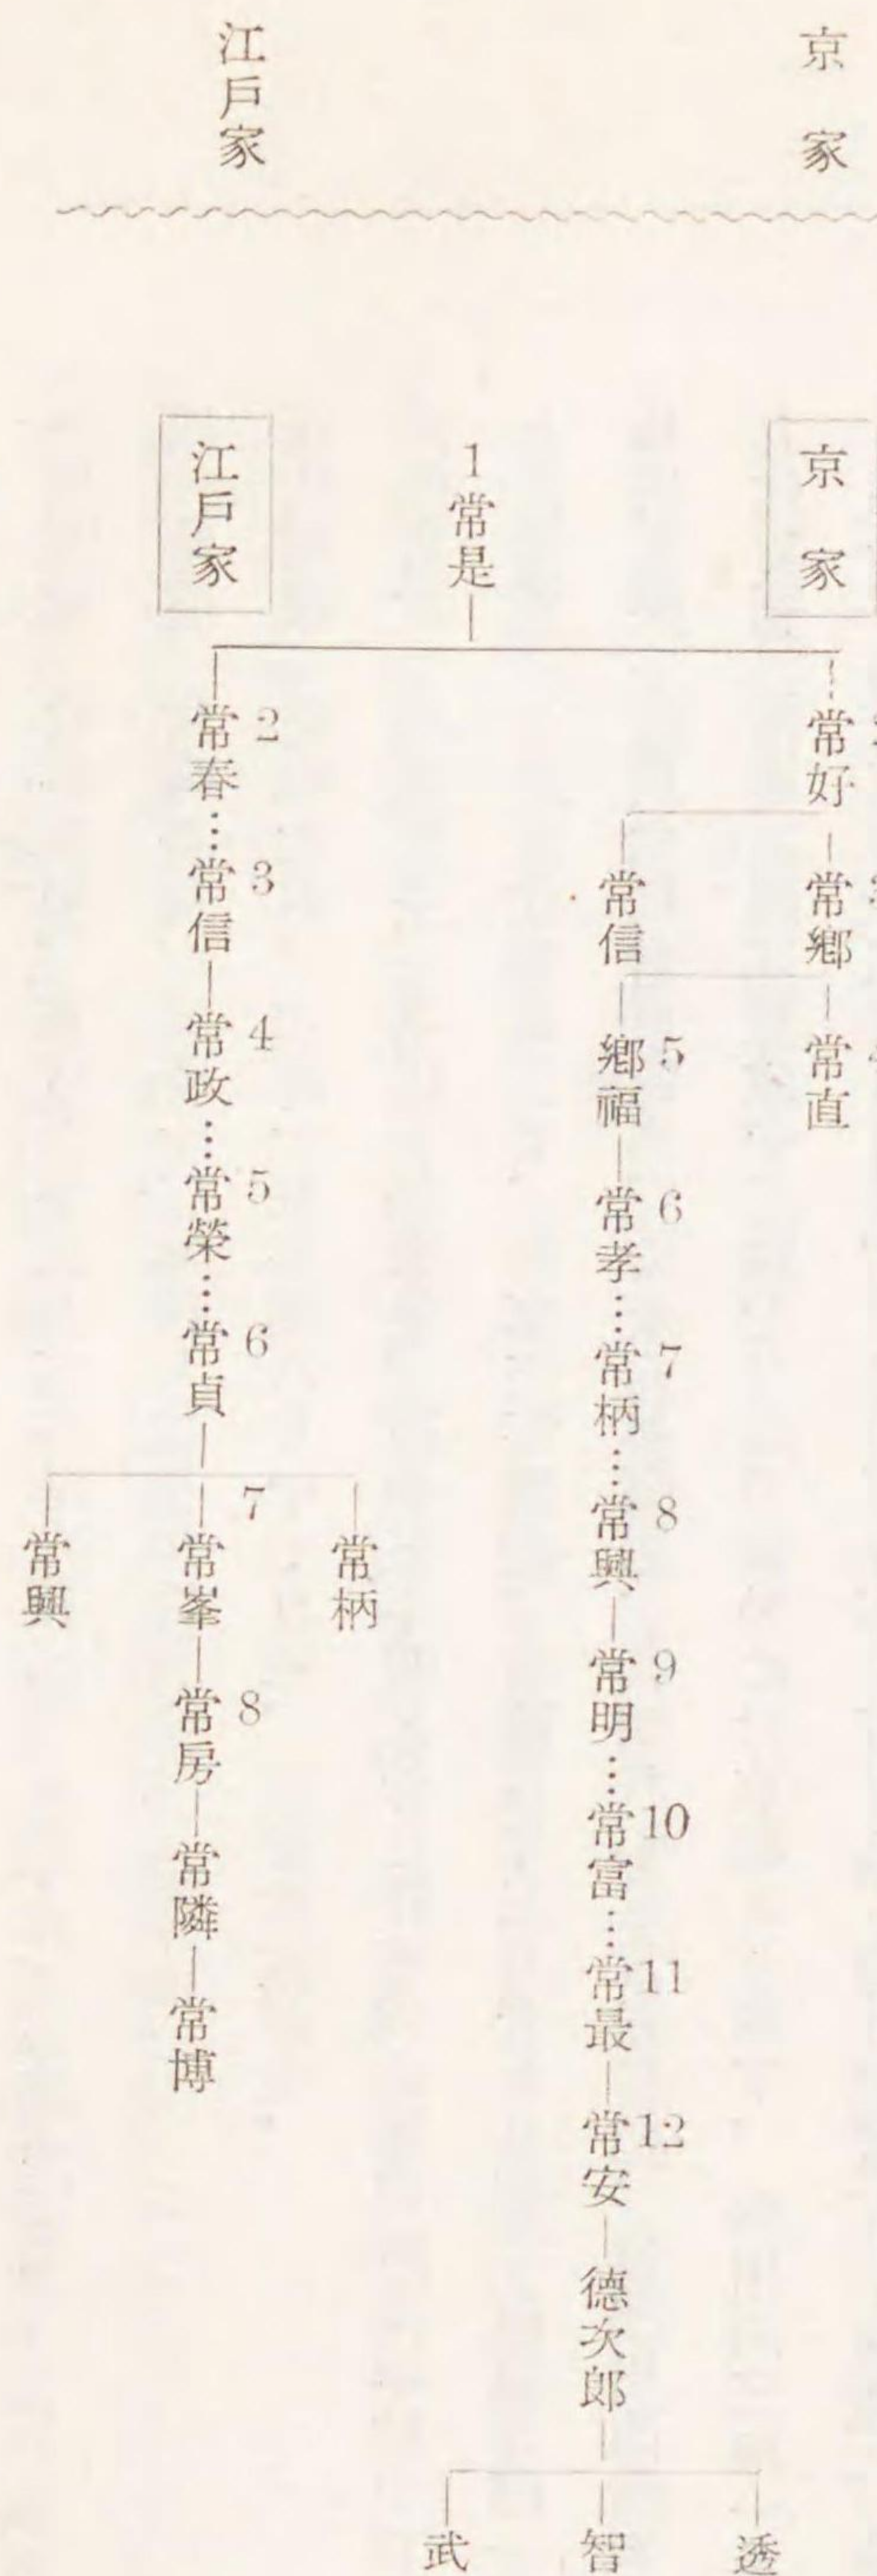 京家
江戶家
京家
2 常好
3 常鄕
4 常直
常信
5 鄕福
6 常孝
7 常柄
8 常興
9 常明
10 常富
11 常最
12 常安
德次郎
透
智
武
1 常是
江戶家
2 常春
3 常信
4 常政
5 常榮
6 常貞
常柄
7 常峯
8 常房
常隣
常博
常興